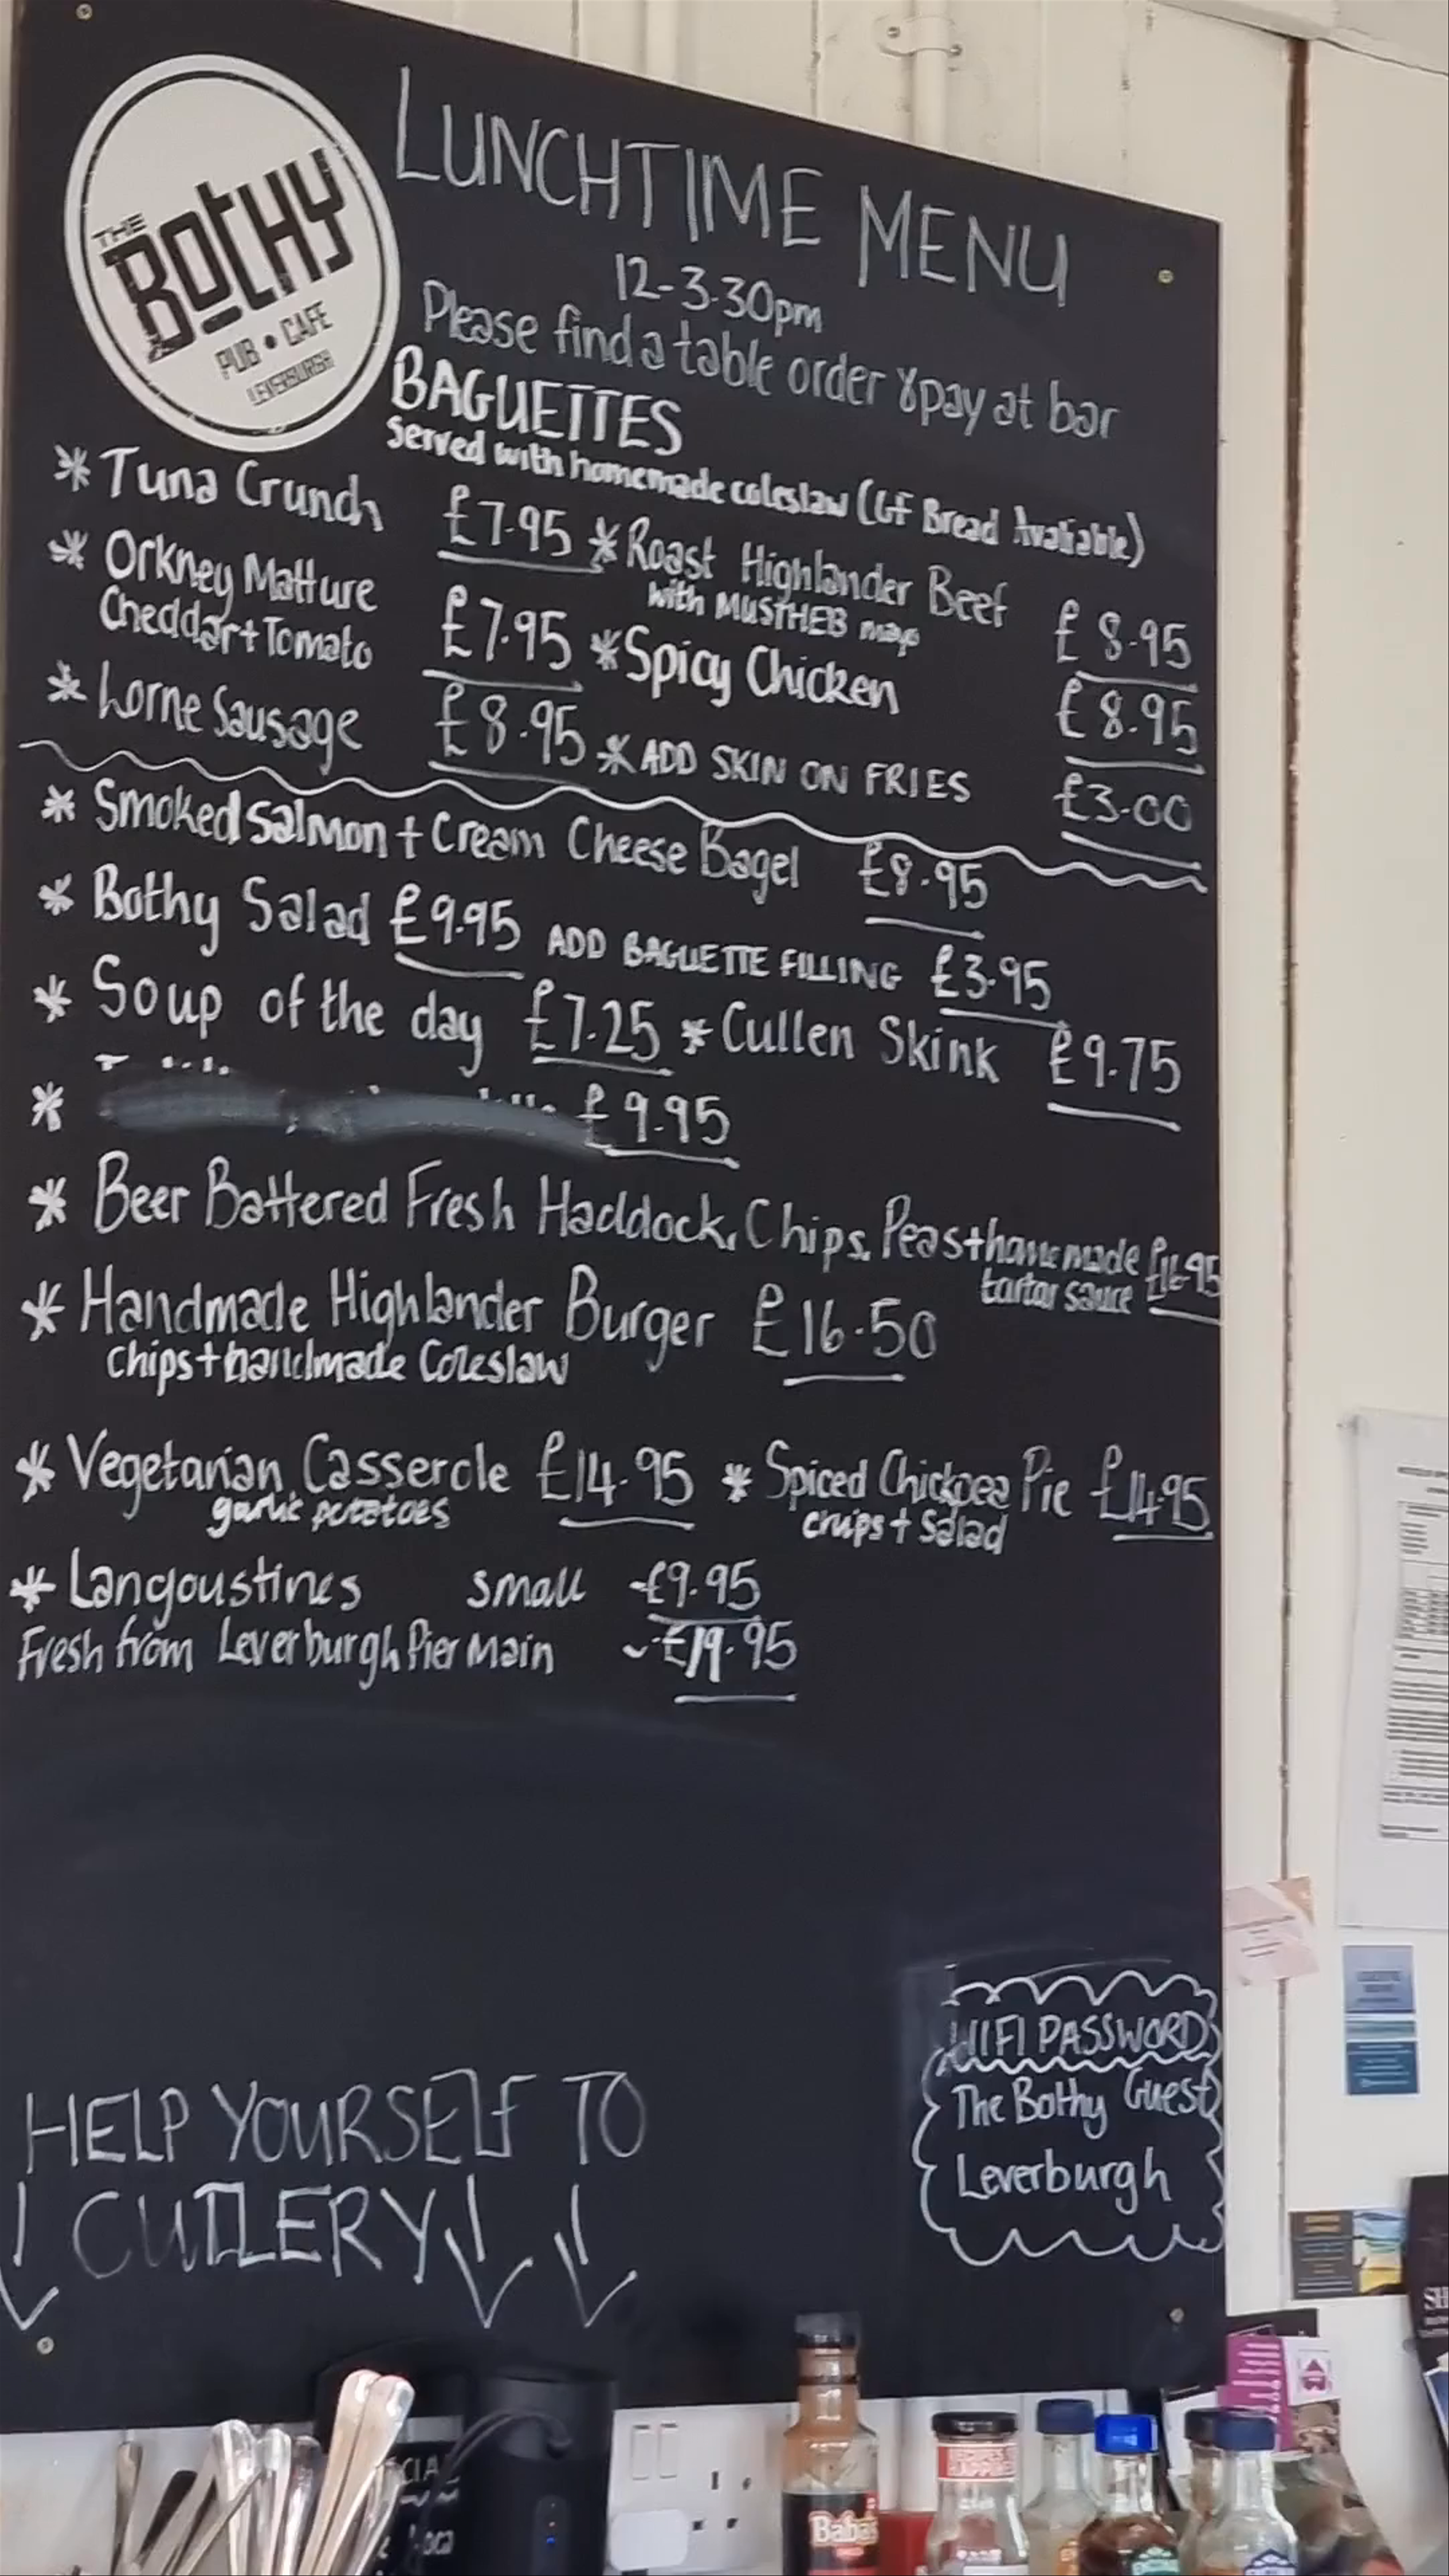 THE
BotHY
PUB • CAFE
LEVERBURGH
LUNCHTIME MENU
12-3.30pm
Please find a table order & pay at bar
BAGUETTES
Served with homemade coleslaw (GF Bread Avaliable)
* Tuna Crunch £7.95
* Roast Highlander Beef £8.95
with mayo
* Orkney Matture
Cheddar + Tomato £7.95
* Spicy Chicken £8.95
* Lorne Sausage £8.95
* ADD SKIN ON FRIES £3.00
* Smoked Salmon + Cream Cheese Bagel £8.95
* Bothy Salad £9.95 ADD BAGUETTE FILLING £3.95
* Soup of the day £7.25 * Cullen Skink £9.75
* £9.95
* Beer Battered Fresh Haddock, Chips, Peas + homemade £16.95
tartar sauce
* Handmade Highlander Burger £16.50
chips + handmade Coleslaw
* Vegetarian Casserole £14.95 * Spiced Chickpea Pie £14.95
garlic potatoes
chips + Salad
* Langoustines small - £9.95
Fresh from Leverburgh Pier Main - £19.95
WIFI PASSWORD
The Bothy Guest
Leverburgh
HELP YOURSELF TO
CUTLERY
Baba's